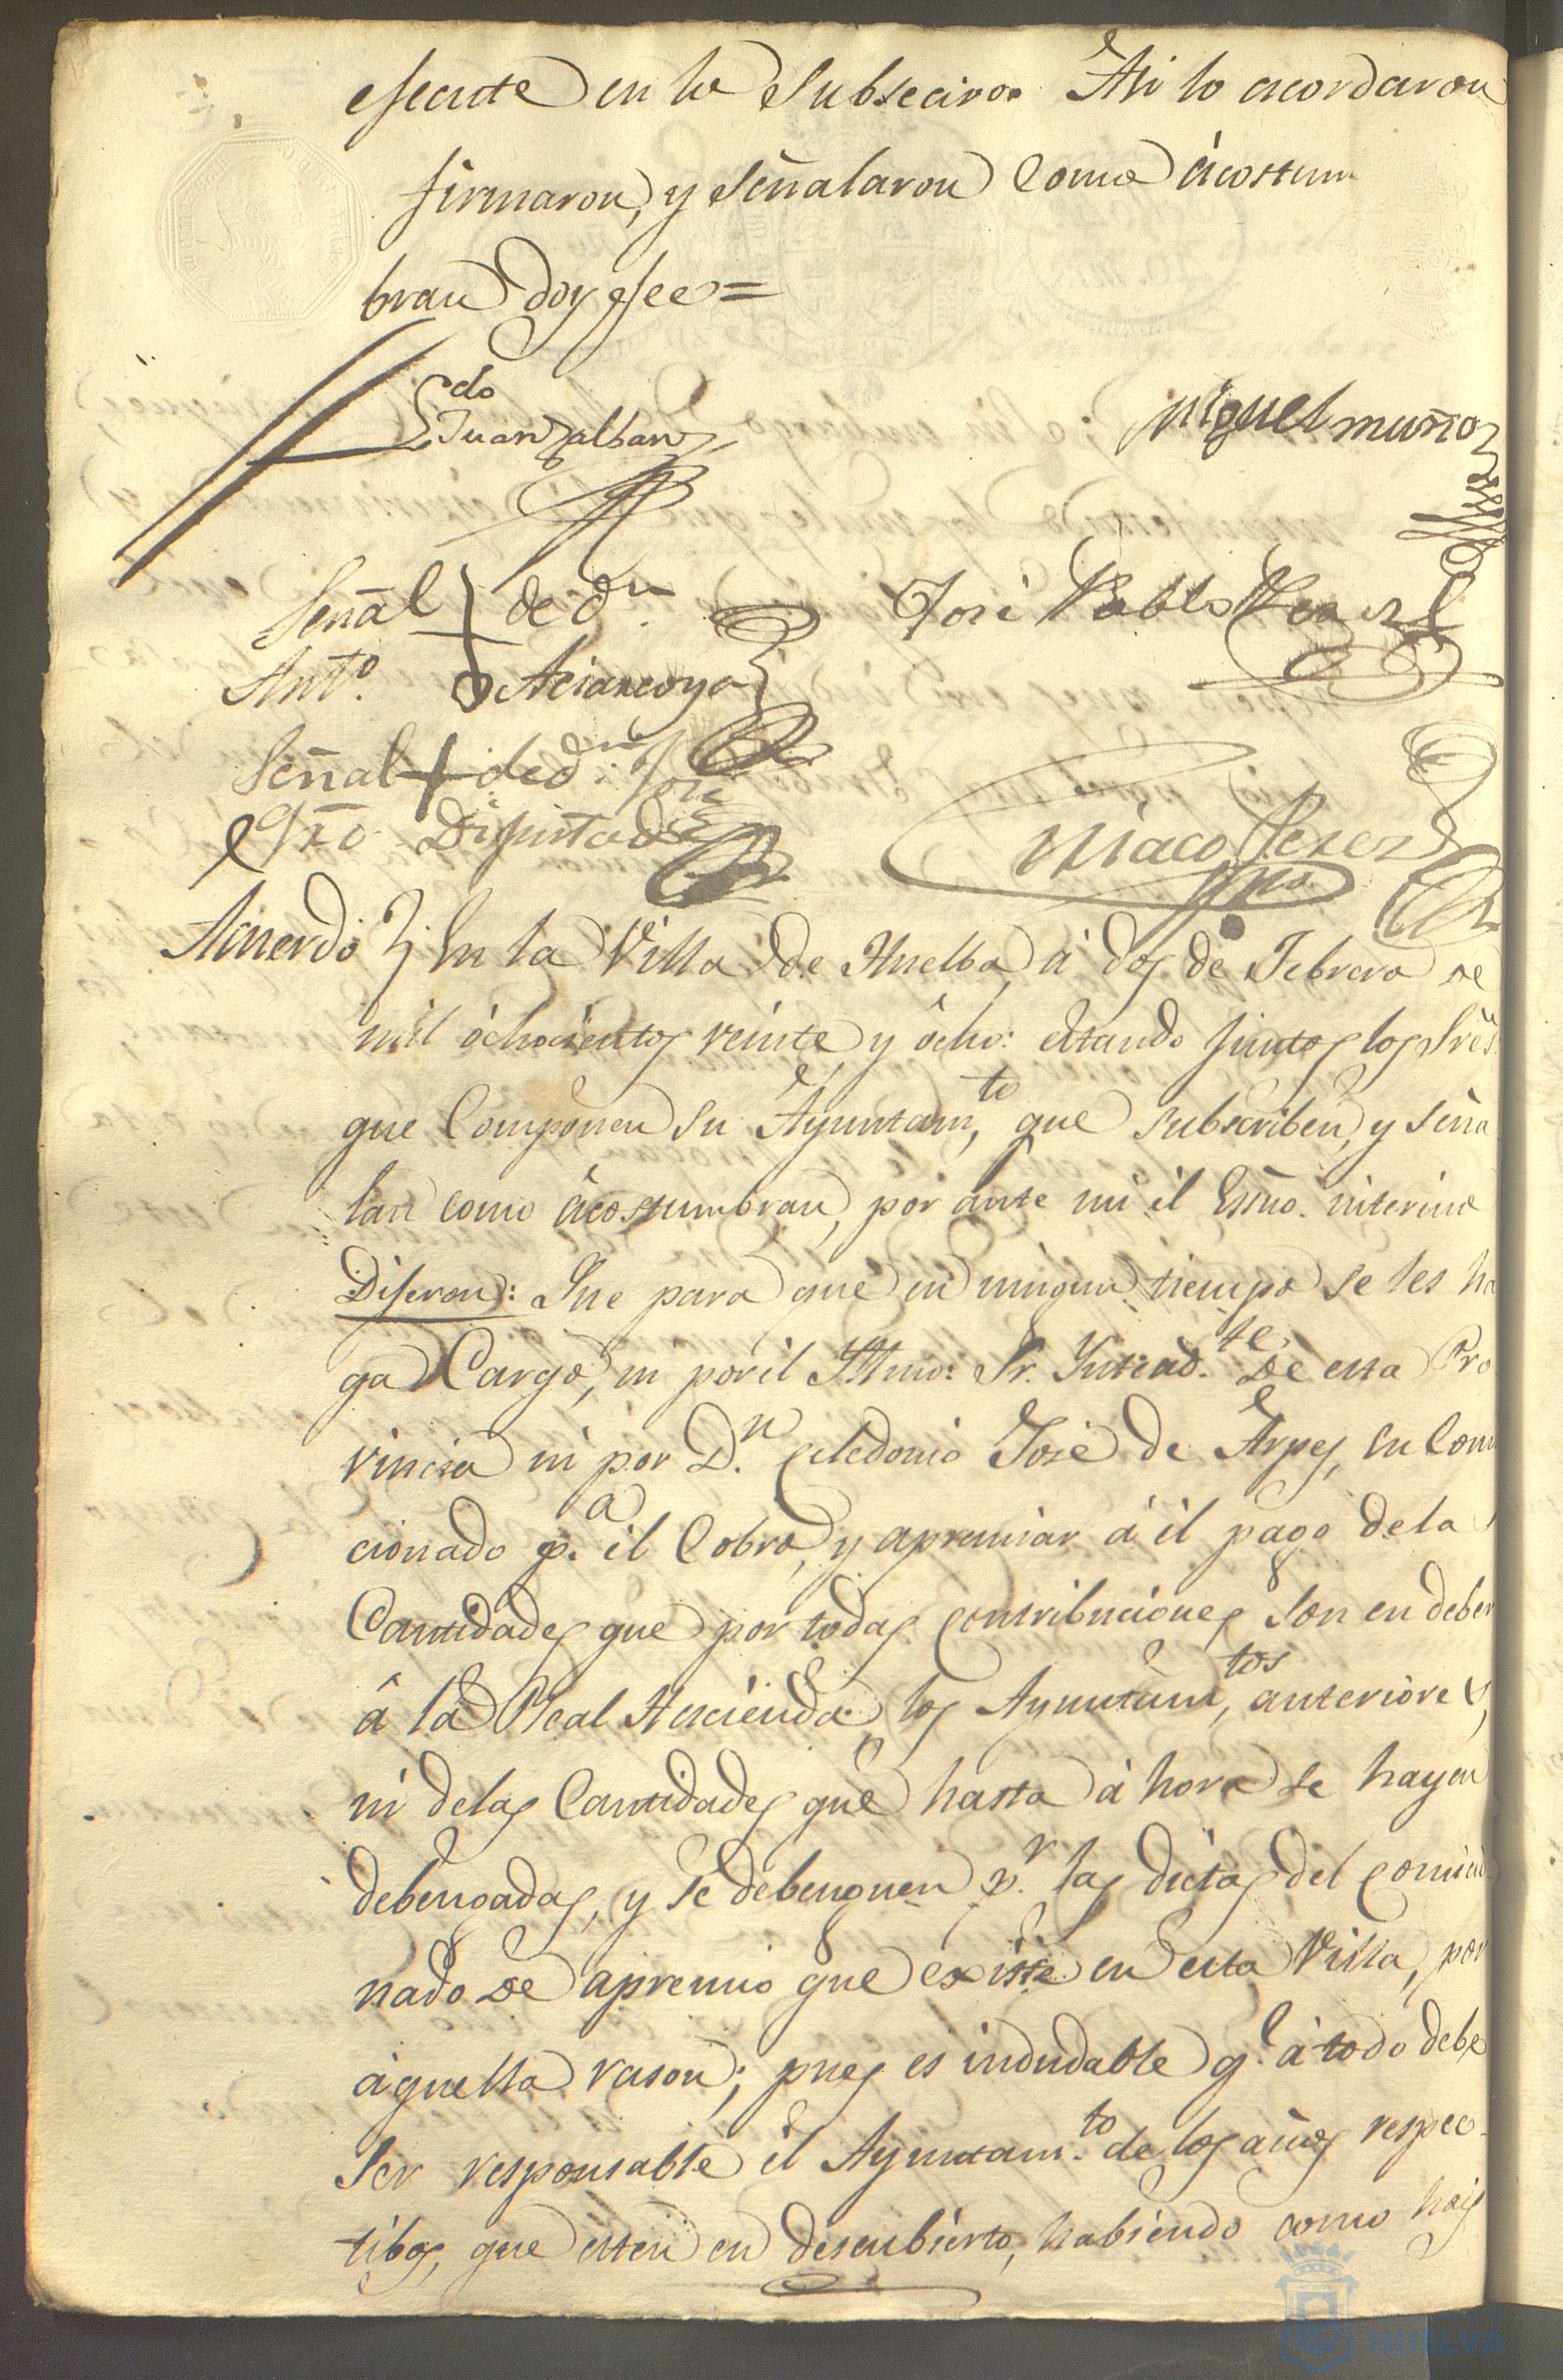 efecute en lo Subsecivo. Asi lo acordaron
firmaron, y señalaron como acostum
bran doy fee=
Ldo
Juan Alban
Miguel muñoz
Señal de Dn.
Anto.
José Pablo Perez
Señal de Dn. José
Diputado
Niaco Perez
Acuerdo En la Villa de Huelba, á dos de Febrero de
mil ôchocientos veinte, y ôcho: estando juntos los Sres.
que componen su Ayuntamto, que subscriben, y seña
lan como âcostumbran, por ante mi el Esno. interino
Dijeron: Que para que en ningun tiempo se les ha
ga Cargo, ni por el Illmo: Sr. Yntendte. de esta Pro
vincia ni por Dn. Celedonio José de Arpes, su Comi
cionado pa. el Cobro, y apremiar á el pago de la
Cantidades que por todas contribuciones son en deber
â la Real Hacienda los Ayuntamtos, anteriores,
ni delas Cantidades que hasta á hora se hayen
debengadas, y se debenguen pr. las dietas del comicio
nado de apremio que existe en esta Villa, por
aquella rason; pues es indudable qe. á todo debe
Ser responsable el Ayuntamto. de los años respec-
tibos, que esten en descubierto, habiendo como hai
HUELVA